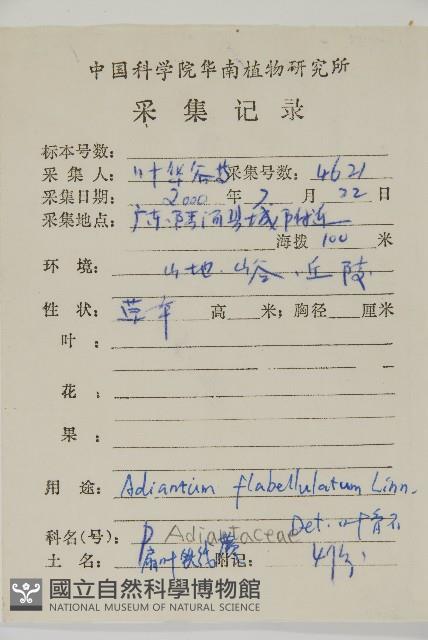 中国科学院华南植物研究所
采集记录
标本号数:
采集人: 叶华谷等 采集号数: 4621
采集日期: 2000 年 7 月 22 日
采集地点: 广东 县城附近
海拨 100 米
环境: 山地.山谷.丘陵
性状: 草本 高 米; 胸径 厘米
叶:
花:
果:
用途: Adiantum flabellulatum Linn.
科名(号): P Adiantaceae Det. 叶
土名: 扇叶铁线蕨 附记: 4份
國立自然科學博物館
NATIONAL MUSEUM OF NATURAL SCIENCE